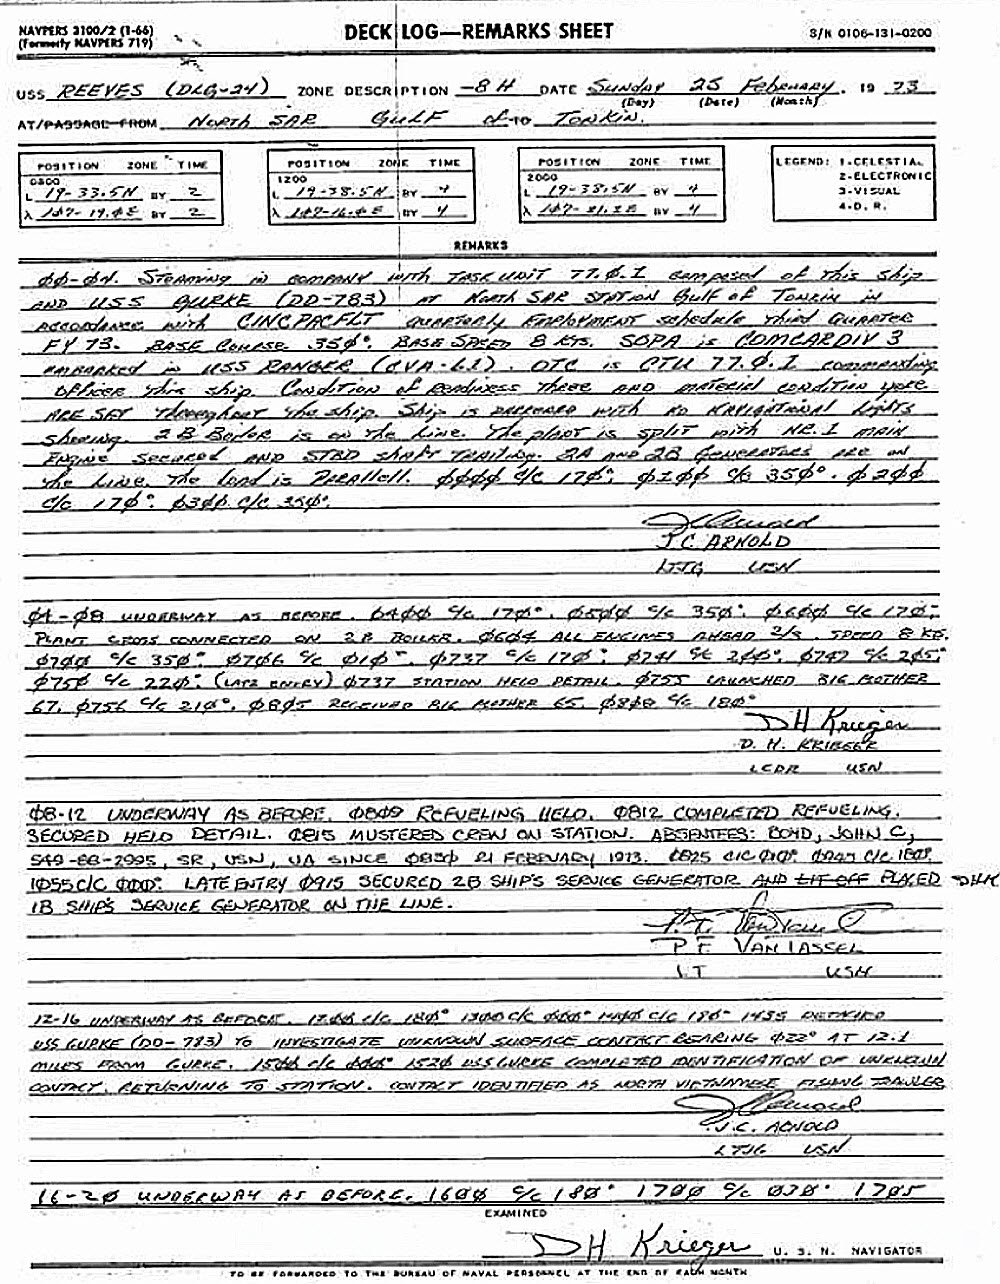 NAVPERS 3100/2 (1-66)
(Formerly NAVPERS 719)
DECK LOG—REMARKS SHEET
S/N 0106-131-0200
USS REEVES (DLG-24) ZONE DESCRIPTION -8 H DATE Sunday 25 February, 19 73
(Day) (Date) (Month)
AT/PASSAGE FROM North SAR Gulf of TO TONKIN.
POSITION ZONE TIME
0800
L 19-33.5N BY 2
λ BY 2
POSITION ZONE TIME
1200
L 19-38.5N BY 4
λ BY 4
POSITION ZONE TIME
2000
L 19-38.5N BY 4
λ BY 4
LEGEND: 1-CELESTIAL
2-ELECTRONIC
3-VISUAL
4-D. R.
REMARKS
00-04. STEAMING in company with TASK UNIT 77.0.1 composed of this ship
AND USS GURKE (DD-783) AT North SAR STATION Gulf of TONKIN in
accordance with CINCPACFLT quarterly Employment schedule third quarter
FY 73. BASE Course 350°. BASE SPEED 8 KTS. SOPA is COMCARDIV 3
embarked in USS RANGER (CVA-61). OTC is CTU 77.0.1 commanding
officer this ship. Condition of readiness three AND material condition yoke
ARE SET throughout the ship. Ship is darkened with no navigational lights
showing. 2B Boiler is on the line. The plant is split with NR. 1 main
Engine secured AND STBD shaft TRAILING. 2A AND 2B Generators are on
the line. The load is Parallell. 0000 c/c 170°. 0100 c/c 350°. 0200
c/c 170°. 0300 c/c 350°.
J.C. ARNOLD
LTJG USN
04-08 UNDERWAY AS BEFORE. 0400 c/c 170°. 0500 c/c 350°. 0600 c/c 170°.
PLANT CROSS CONNECTED ON 2B BOILER. 0604 ALL ENGINES AHEAD 2/3. SPEED 8 KTS.
0700 c/c 350°. 0706 c/c 010°. 0737 c/c 170°. 0741 c/c 200°. 0747 c/c 205°.
0750 c/c 220°. (LATE ENTRY) 0737 STATION HELO DETAIL. 0755 LAUNCHED BIG MOTHER
67. 0756 c/c 210°. 0805 RECEIVED BIG MOTHER 65. c/c 180°
DH Krieger
D. H. KRIEGER
LCDR USN
08-12 UNDERWAY AS BEFORE. 0809 REFUELING HELO. 0812 COMPLETED REFUELING.
SECURED HELO DETAIL. 0815 MUSTERED CREW ON STATION. ABSENTEES: BOYD, JOHN C,
549-88-2995, SR, USN, UA SINCE 0830 21 FEBRUARY 1973. 0825 c/c 010°. c/c 180°.
1055 c/c 000°. LATE ENTRY 0915 SECURED 2B SHIP'S SERVICE GENERATOR AND LIT OFF PLACED DHK
1B SHIP'S SERVICE GENERATOR ON THE LINE.
P F VAN TASSEL
LT USN
12-16 UNDERWAY AS BEFORE. 1200 c/c 180° 1300 c/c 000° 1400 c/c 180° 1455 DETACHED
USS GURKE (DD-783) TO INVESTIGATE UNKNOWN SURFACE CONTACT BEARING 022° AT 12.1
MILES FROM GURKE. 1500 c/c 000° 1520 USS GURKE COMPLETED IDENTIFICATION OF UNKNOWN
CONTACT. RETURNING TO STATION. CONTACT IDENTIFIED AS NORTH VIETNAMESE FISHING TRAWLER
J.C. ARNOLD
LTJG USN
16-20 UNDERWAY AS BEFORE. 1600 c/c 180° 1700 c/c 030° 1705
EXAMINED
DH Krieger U. S. N. NAVIGATOR
TO BE FORWARDED TO THE BUREAU OF NAVAL PERSONNEL AT THE END OF EACH MONTH